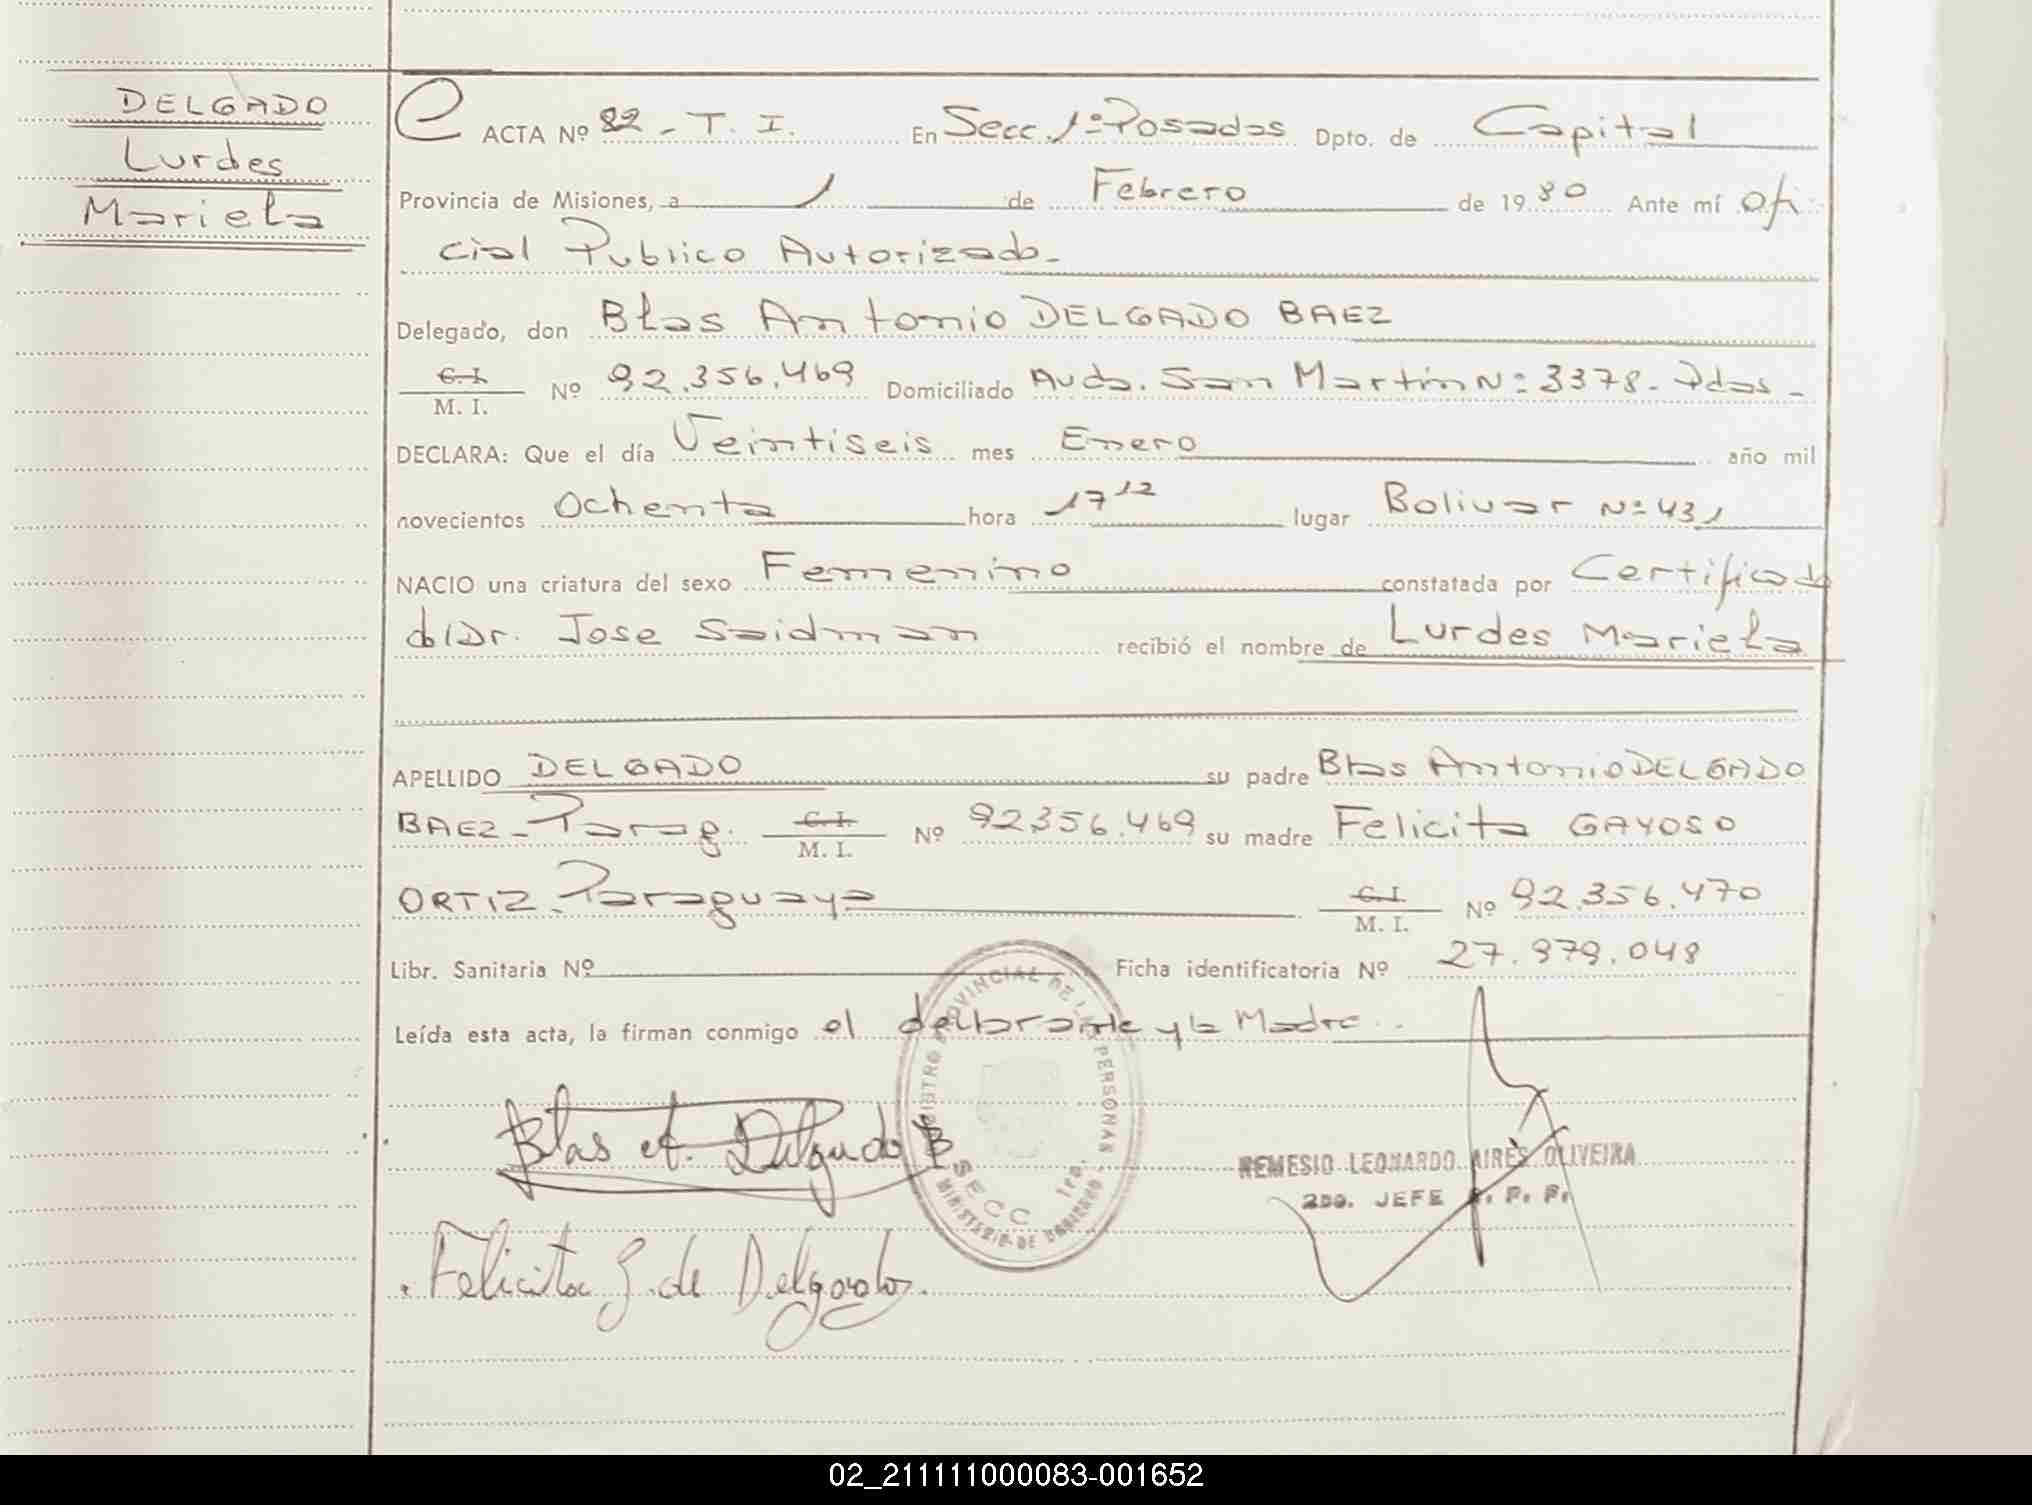 DELGADO
Lurdes
Mariela
ACTA Nº 82 - T. I. En Secc. 1º Posadas Dpto. de Capital
Provincia de Misiones, a 1 de Febrero de 1980 Ante mí ofi
cial Publico Autorizado -
Delegado, don Blas Antonio DELGADO BAEZ
C. I.
M. I. Nº 92.356.469 Domiciliado Avda. San Martin Nº 3378 - Pdas -
DECLARA: Que el día Veintiseis mes Enero año mil
novecientos Ochenta hora 17 12 lugar Bolivar Nº 431
NACIO una criatura del sexo Femenino constatada por Certificado
d/Dr. Jose Saidman recibió el nombre de Lurdes Mariela
APELLIDO DELGADO su padre Blas Antonio DELGADO
BAEZ - Parag. C. I. M. I. Nº 92356.469 su madre Felicita GAYOSO
ORTIZ - Paraguaya C. I. M. I. Nº 92.356.470
Libr. Sanitaria Nº Ficha identificatoria Nº 27.979.048
Leída esta acta, la firman conmigo el declarante y la Madre.
REGISTRO PROVINCIAL DE LAS PERSONAS
SECC 1ra.
MINISTERIO DE GOBIERNO
Blas A. Delgado B
NEMESIO LEONARDO AIRES OLIVEIRA
2DO. JEFE R. P. P.
Felicita G. de Delgado.
02_211111000083-001652